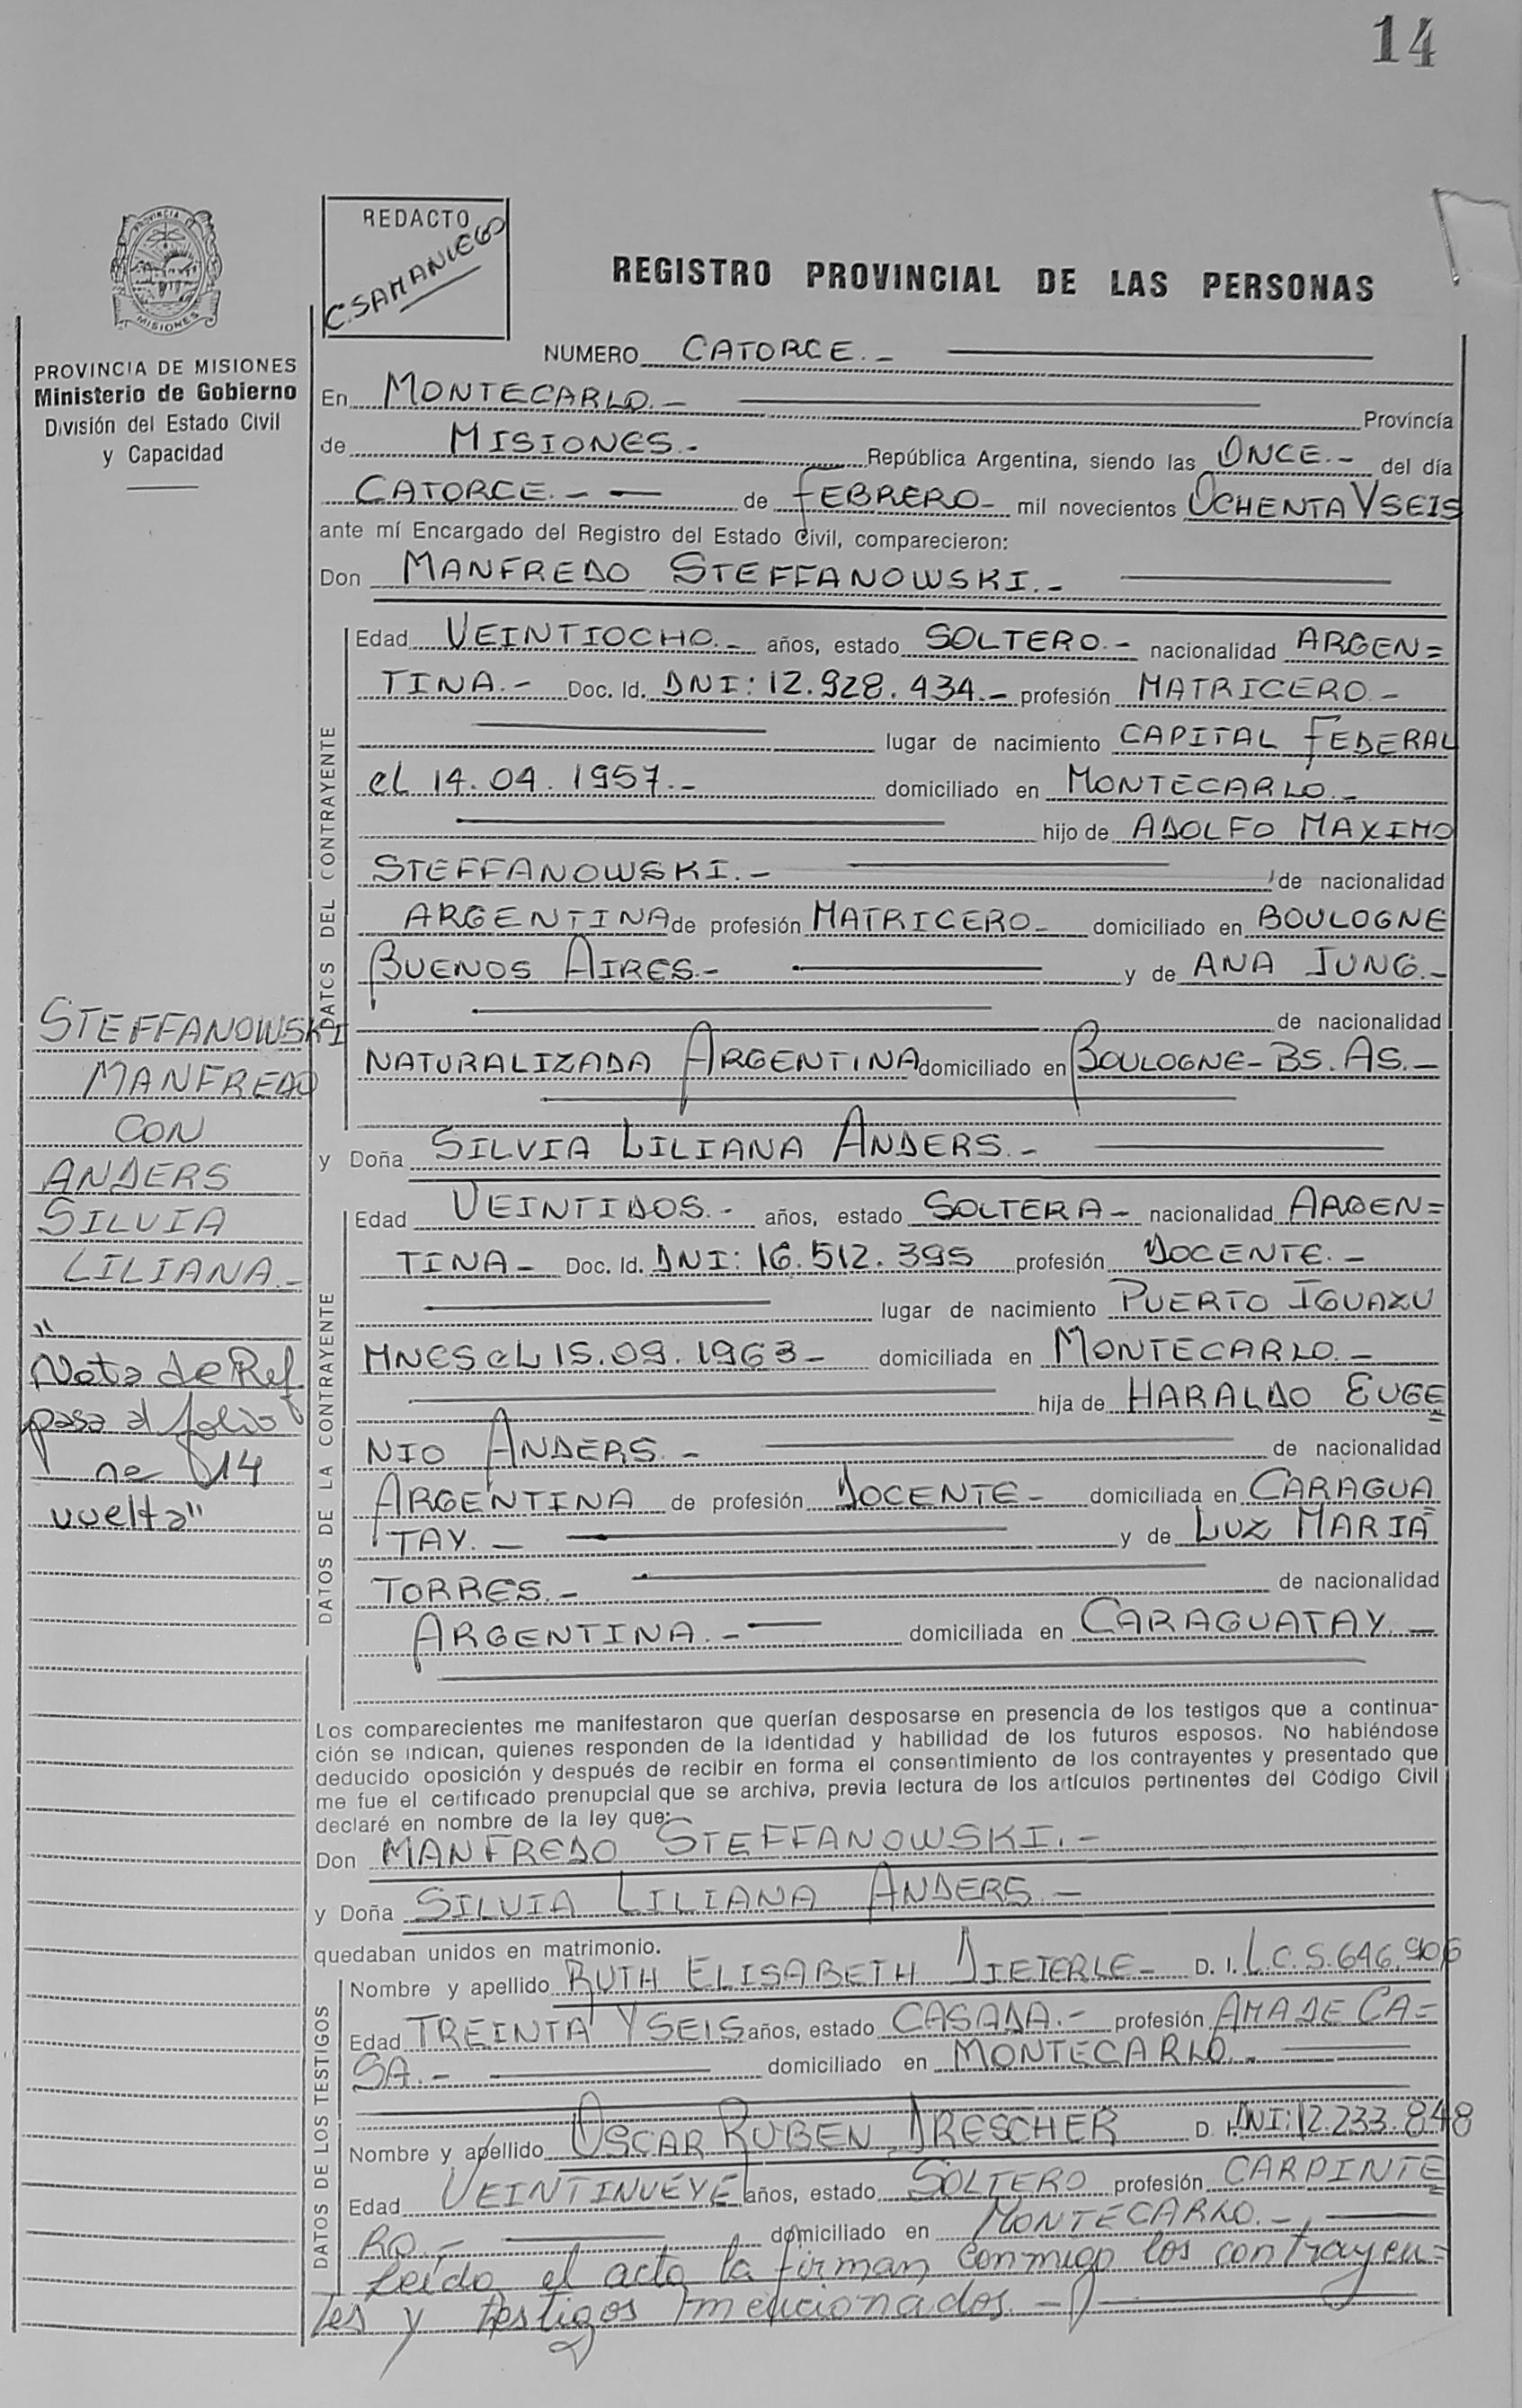 14
REDACTO
C. SAMANIEGO
PROVINCIA
MISIONES
REGISTRO PROVINCIAL DE LAS PERSONAS
PROVINCIA DE MISIONES
Ministerio de Gobierno
División del Estado Civil
y Capacidad
NUMERO CATORCE.-
En MONTECARLO.- Provincia
de MISIONES.- República Argentina, siendo las ONCE.- del día
CATORCE.- - de FEBRERO- mil novecientos OCHENTA Y SEIS
ante mí Encargado del Registro del Estado Civil, comparecieron:
Don MANFREDO STEFFANOWSKI.-
DATOS DEL CONTRAYENTE
Edad VEINTIOCHO.- años, estado SOLTERO.- nacionalidad ARGEN=
TINA.- Doc. Id. DNI: 12.928.434.- profesión MATRICERO.-
lugar de nacimiento CAPITAL FEDERAL
el 14.04.1957.- domiciliado en MONTECARLO.-
hijo de ADOLFO MAXIMO
STEFFANOWSKI.- de nacionalidad
ARGENTINA de profesión MATRICERO- domiciliado en BOULOGNE
BUENOS AIRES.- y de ANA JUNG.-
de nacionalidad
NATURALIZADA ARGENTINA domiciliado en BOULOGNE-BS.AS.-
STEFFANOWSKI
MANFREDO
CON
ANDERS
SILVIA
LILIANA.-
"
Nota de Ref
pasa al folio
no 14
vuelta"
y Doña SILVIA LILIANA ANDERS.-
DATOS DE LA CONTRAYENTE
Edad VEINTIDOS.- años, estado SOLTERA- nacionalidad ARGEN=
TINA- Doc. Id. DNI: 16.512.395 profesión DOCENTE.-
lugar de nacimiento PUERTO IGUAZU
MNES el 15.09.1963- domiciliada en MONTECARLO.-
hija de HARALDO EUGE
NIO ANDERS.- de nacionalidad
ARGENTINA de profesión DOCENTE- domiciliada en CARAGUA
TAY.- y de LUZ MARIA
TORRES.- de nacionalidad
ARGENTINA.- domiciliada en CARAGUATAY.-
Los comparecientes me manifestaron que querían desposarse en presencia de los testigos que a continua-
ción se indican, quienes responden de la identidad y habilidad de los futuros esposos. No habiéndose
deducido oposición y después de recibir en forma el consentimiento de los contrayentes y presentado que
me fue el certificado prenupcial que se archiva, previa lectura de los artículos pertinentes del Código Civil
declaré en nombre de la ley que:
Don MANFREDO STEFFANOWSKI.-
y Doña SILVIA LILIANA ANDERS.-
quedaban unidos en matrimonio.
DATOS DE LOS TESTIGOS
Nombre y apellido RUTH ELISABETH DIETERLE- D. I. L.C.5.646.906
Edad TREINTA Y SEIS años, estado CASADA.- profesión AMA DE CA=
SA.- domiciliado en MONTECARLO.-
Nombre y apellido OSCAR RUBEN DRESCHER D. I. DNI: 12.233.848
Edad VEINTINUEVE años, estado SOLTERO profesión CARPINTE
RO.- domiciliado en MONTECARLO.-
Leída el acta la firman conmigo los contrayen=
tes y testigos mencionados.-